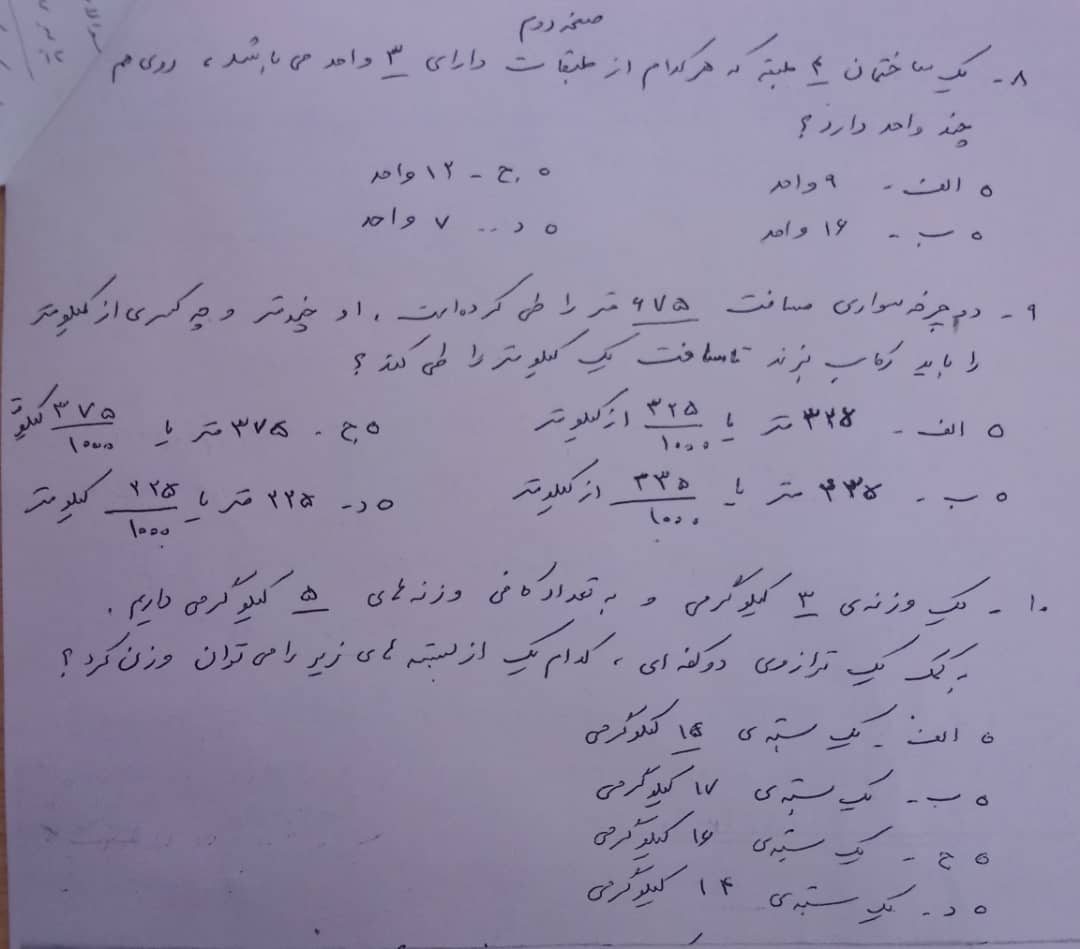 صفحه دوم
۸- یک ساختمان ۴ طبقه که هر کدام از طبقات دارای ۳ واحد می باشد، روی هم
چند واحد دارد؟
الف - ۹ واحد
ج - ۱۲ واحد
ب - ۱۶ واحد
د - ۷ واحد
۹- دوچرخه سواری مسافت ۶۷۵ متر را طی کرده است. او چند متر و چه کسری از کیلومتر
را باید رکاب بزند تا مسافت یک کیلومتر را طی کند؟
الف - ۳۲۵ متر یا ۳۲۵/۱۰۰۰ از کیلومتر
ج - ۳۷۵ متر یا ۳۷۵/۱۰۰۰ کیلو
ب - ۳۳۵ متر یا ۳۳۵/۱۰۰۰ از کیلومتر
د - ۲۲۵ متر یا ۲۲۵/۱۰۰۰ کیلومتر
۱۰- یک وزنه ی ۳ کیلوگرمی و به تعداد کافی وزنه های ۵ کیلوگرمی داریم.
به کمک یک ترازوی دو کفه ای، کدام یک از بسته های زیر را می توان وزن کرد؟
الف - یک بسته ی ۱۵ کیلوگرمی
ب - یک بسته ی ۱۷ کیلوگرمی
ج - یک بسته ی ۱۶ کیلوگرمی
د - یک بسته ی ۱۴ کیلوگرمی